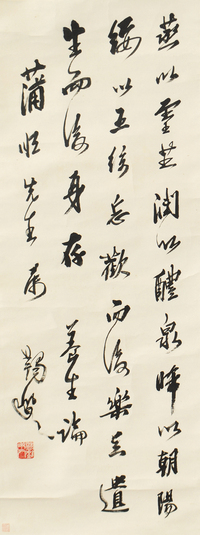 蒸以靈芝潤以醴泉晞以朝陽
綏以五絃忘歡而後樂足遺
生而後身存 養生論
蒲恒先生屬